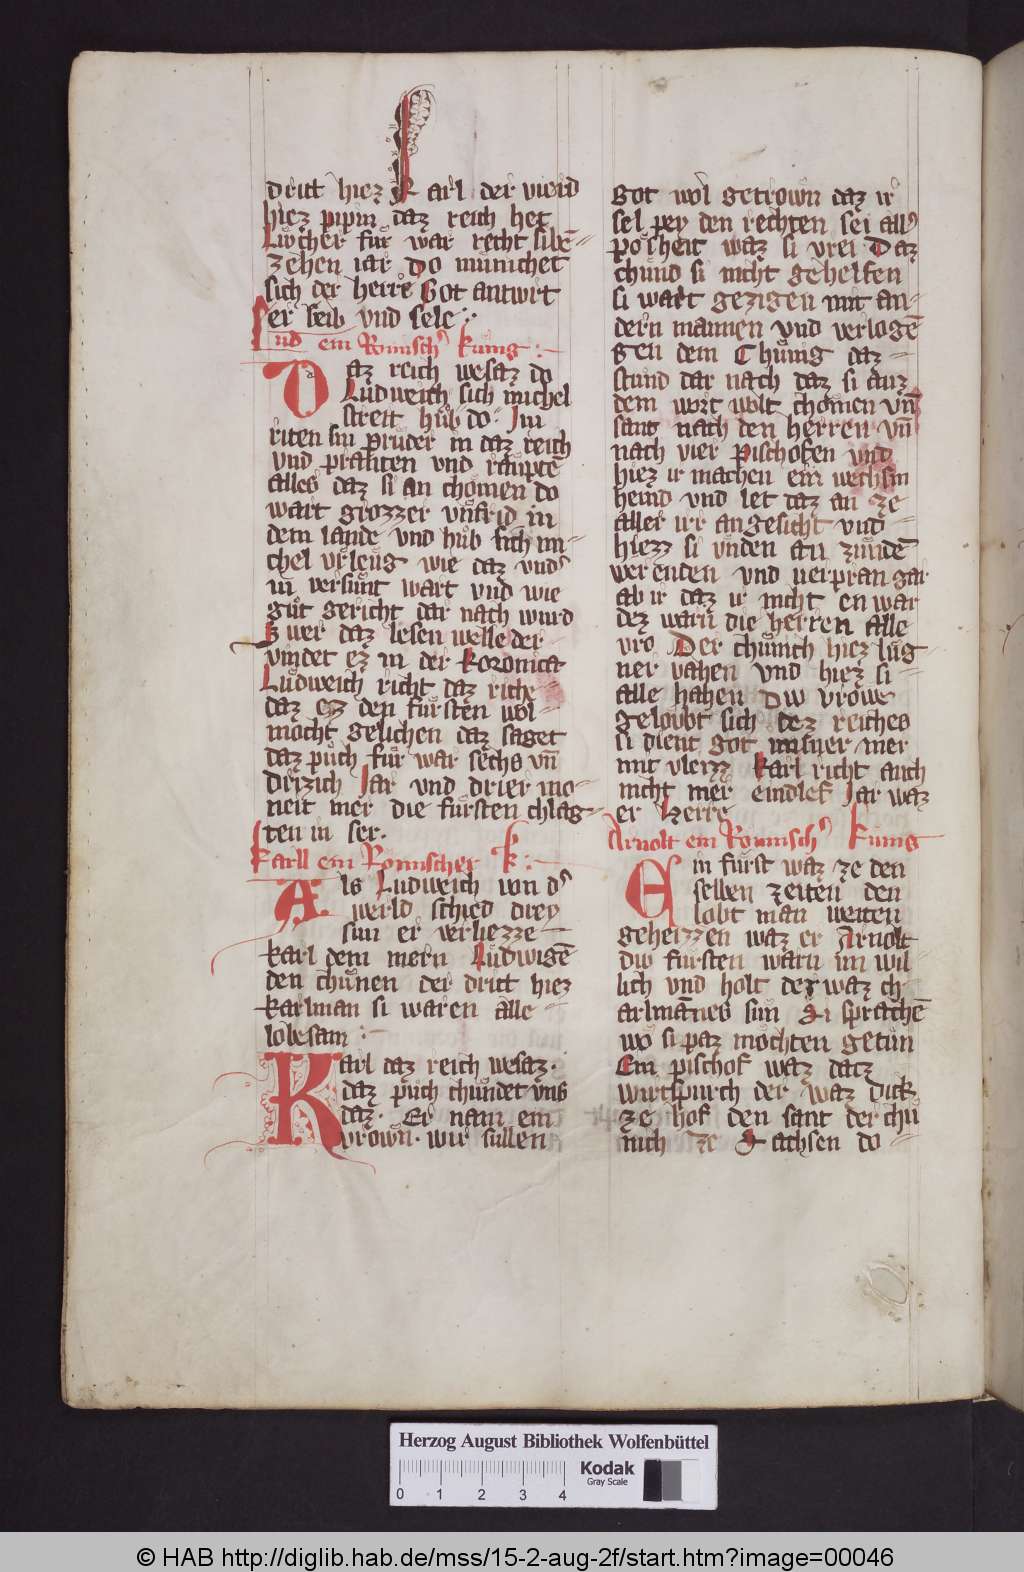 dritt hiez Karl der vierd
hiez pipin daz reich het
Luͦther fuͤr war recht sibē
zehen iar Do muͤnichet
sich der herre Got antwͦrt
er leib vnd sele
Lud ein Romischͬ kuͤng
Daz reich wesaz do
Ludweich sich michel
streit huͤb do Im
riten sin pruͤder in daz reich
vnd pranten vnd raupten
alles daz si an choͤmen do
wart grozzer vnfrid in
dem lande vnd huͤb sich mi
chel vrleug wie daz vndͬ
in versuͤnt wart vnd wie
guͤt gericht dar nach wurd
Swer daz lesen welle der
vindet ez in der koronica
Luͤdweich richt daz riche
daz ez den fuͤrsten wol
mocht gelichen daz saget
daz puͤch fuͤr war sechs vn̄
drizich Jar vnd drier mo
neit mer die fuͤrsten chlag
ten in ser
Karll ein Romischer k
Als Ludweich von dͬ
werld schied drey
sun er verliezze
karl dem mern Luͤdwigē
den chuͤnen der dritt hiez
karlman si waren alle
lobesam
Karl daz reich wesaz
daz puͤch chuͤndet vns
daz Er nam ein
vrown wir sullen
Got wol getrown daz ir
sel pey den rechten sei allͬ
posheit waz si vrei Daz
chund si nicht gehelfen
si wart gezigen mit an
dern mannen vnd verlogē
gen dem Chuͤnig daz
stund dar nach daz si auz
dem wort wolt chomen vn̄
sant nach den herren vn̄
nach vier pischofen vnd
hiez ir machen ein wechsin
hemd vnd let daz an ze
aller irr angesicht vnd
hiezz si vnden an zuͤndē
werenden vnd verpran gar
ab ir daz ir nicht en war
dez warn die herren alle
vro Der chuͤnich hiez lug
ner vahen vnd hiez si
alle hahen Diu vrowe
geloubt sich dez reiches
si dient got immer mer
mit vleizz karl richt auch
nicht mer eindlef Jar waz
er herre
Arnolt ein Romischͬ kuͤng
Ein fuͤrst waz ze den
selben zeiten den
lobt man weiten
geheizzen waz er Arnolt
diw fuͤrsten warn im wil
lich vnd holt der waz ch
arlmānes sun Si sprachē
wo si paz mochten getuͤn
Ein pischof waz datz
wirtspurch der waz dick
ze hof den sant der chuͤ
nich ze Sachsen do
Herzog August Bibliothek Wolfenbüttel
0 1 2 3 4
Kodak
Gray Scale
© HAB http://diglib.hab.de/mss/15-2-aug-2f/start.htm?image=00046